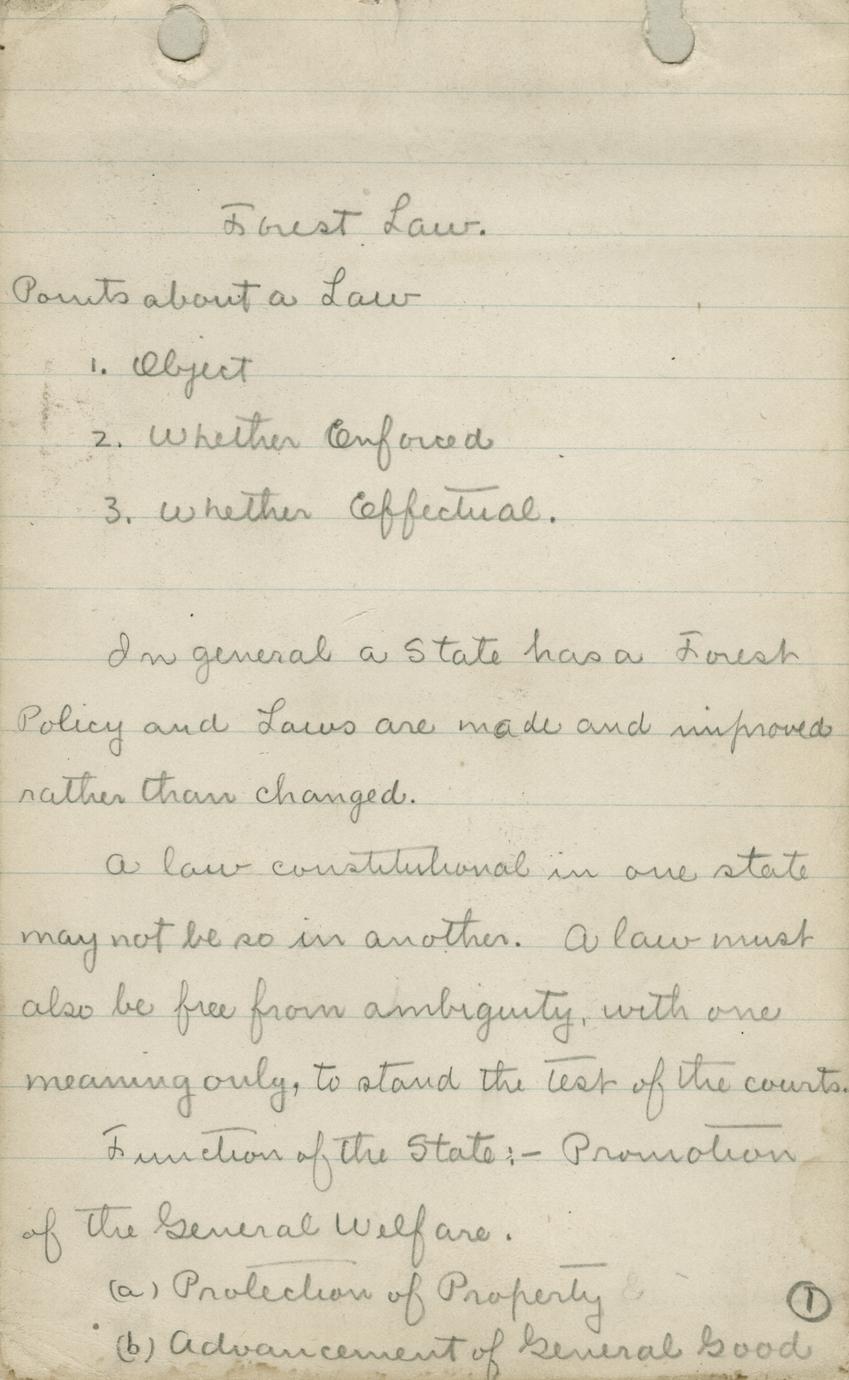 Forest Law.
Points about a Law
1. Object
2. Whether Enforced
3. Whether Effectual.
In general a State has a Forest
Policy and Laws are made and improved
rather than changed.
A law constitutional in one state
may not be so in another. A law must
also be free from ambiguity, with one
meaning only, to stand the test of the courts.
Function of the State:- Promotion
of the General Welfare.
(a) Protection of Property
(b) Advancement of General Good
1